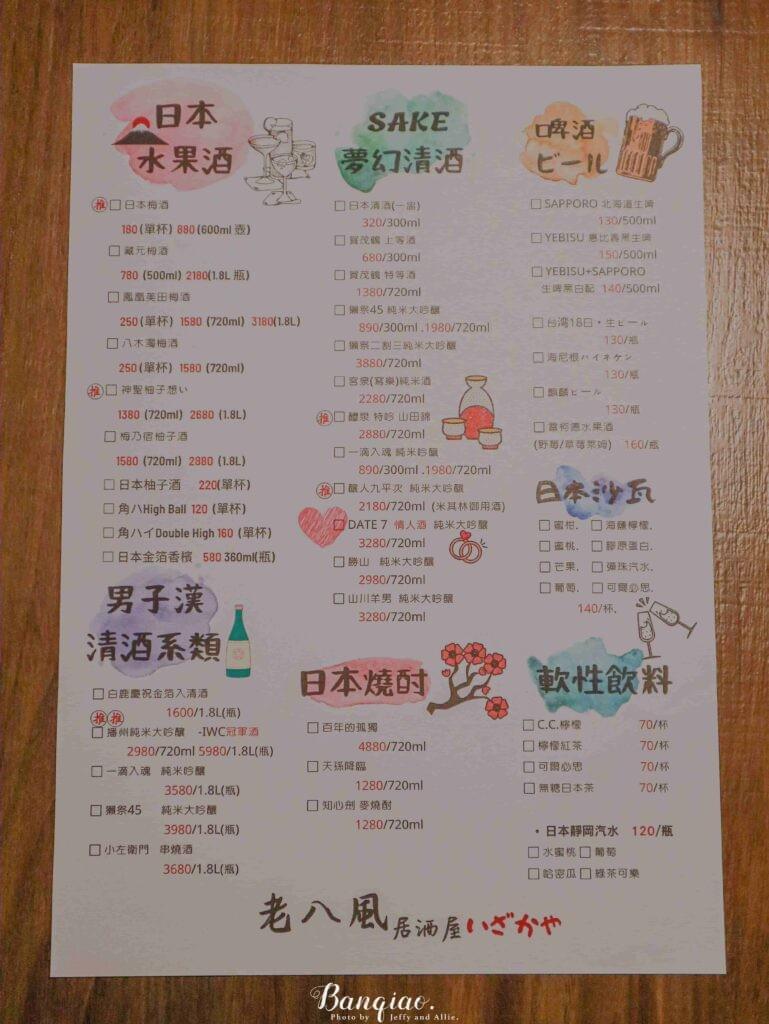 日本
水果酒
推 □ 日本梅酒
180(單杯) 880(600ml 壺)
□ 蔵元梅酒
780 (500ml) 2180(1.8L 瓶)
□ 鳳凰美田梅酒
250(單杯) 1580 (720ml) 3180(1.8L)
□ 八木濁梅酒
250(單杯) 1580 (720ml)
推 □ 神聖柚子想い
1380 (720ml) 2680 (1.8L)
□ 梅乃宿柚子酒
1580 (720ml) 2880 (1.8L)
□ 日本柚子酒 220(單杯)
□ 角ハHigh Ball 120 (單杯)
□ 角ハイDouble High 160 (單杯)
□ 日本金箔香檳 580 360ml(瓶)
男子漢
清酒系類
□ 白鹿慶祝金箔入清酒
1600/1.8L(瓶)
推推
□ 播州純米大吟釀 -IWC冠軍酒
2980/720ml 5980/1.8L(瓶)
□ 一滴入魂 純米吟釀
3580/1.8L(瓶)
□ 獺祭45 純米大吟釀
3980/1.8L(瓶)
□ 小左衛門 串燒酒
3680/1.8L(瓶)
SAKE
夢幻清酒
□ 日本清酒(一壺)
320/300ml
□ 賀茂鶴 上等酒
680/300ml
□ 賀茂鶴 特等酒
1380/720ml
□ 獺祭45 純米大吟釀
890/300ml .1980/720ml
□ 獺祭二割三純米大吟釀
3880/720ml
□ 宮泉(寫樂)純米酒
2280/720ml
推 □ 醴泉 特吟 山田錦
2880/720ml
□ 一滴入魂 純米吟釀
890/300ml .1980/720ml
推 □ 釀人九平次 純米大吟釀
2180/720ml (米其林御用酒)
□ DATE 7 情人酒 純米大吟釀
3280/720ml
□ 勝山 純米大吟釀
2980/720ml
□ 山川羊男 純米大吟釀
3280/720ml
日本燒酎
□ 百年的孤獨
4880/720ml
□ 天孫降臨
1280/720ml
□ 知心劍 麥燒酎
1280/720ml
啤酒
ビール
□ SAPPORO 北海道生啤
130/500ml
□ YEBISU 惠比壽黑生啤
150/500ml
□ YEBISU+SAPPORO
生啤黑白配 140/500ml
□ 台湾18日・生ビール
130/瓶
□ 海尼根ハイネケン
130/瓶
□ 麒麟ビール
130/瓶
□ 富柯德水果酒
(野莓/草莓萊姆) 160/瓶
日本沙瓦
□ 蜜柑. □ 海鹽檸檬.
□ 蜜桃. □ 膠原蛋白.
□ 芒果. □ 彈珠汽水.
□ 葡萄. □ 可爾必思.
140/杯.
軟性飲料
□ C.C.檸檬 70/杯
□ 檸檬紅茶 70/杯
□ 可爾必思 70/杯
□ 無糖日本茶 70/杯
・日本靜岡汽水 120/瓶
□ 水蜜桃 □ 葡萄
□ 哈密瓜 □ 綠茶可樂
老八風 居酒屋 いざかや
Banqiao.
Photo by Jeffy and Allie.